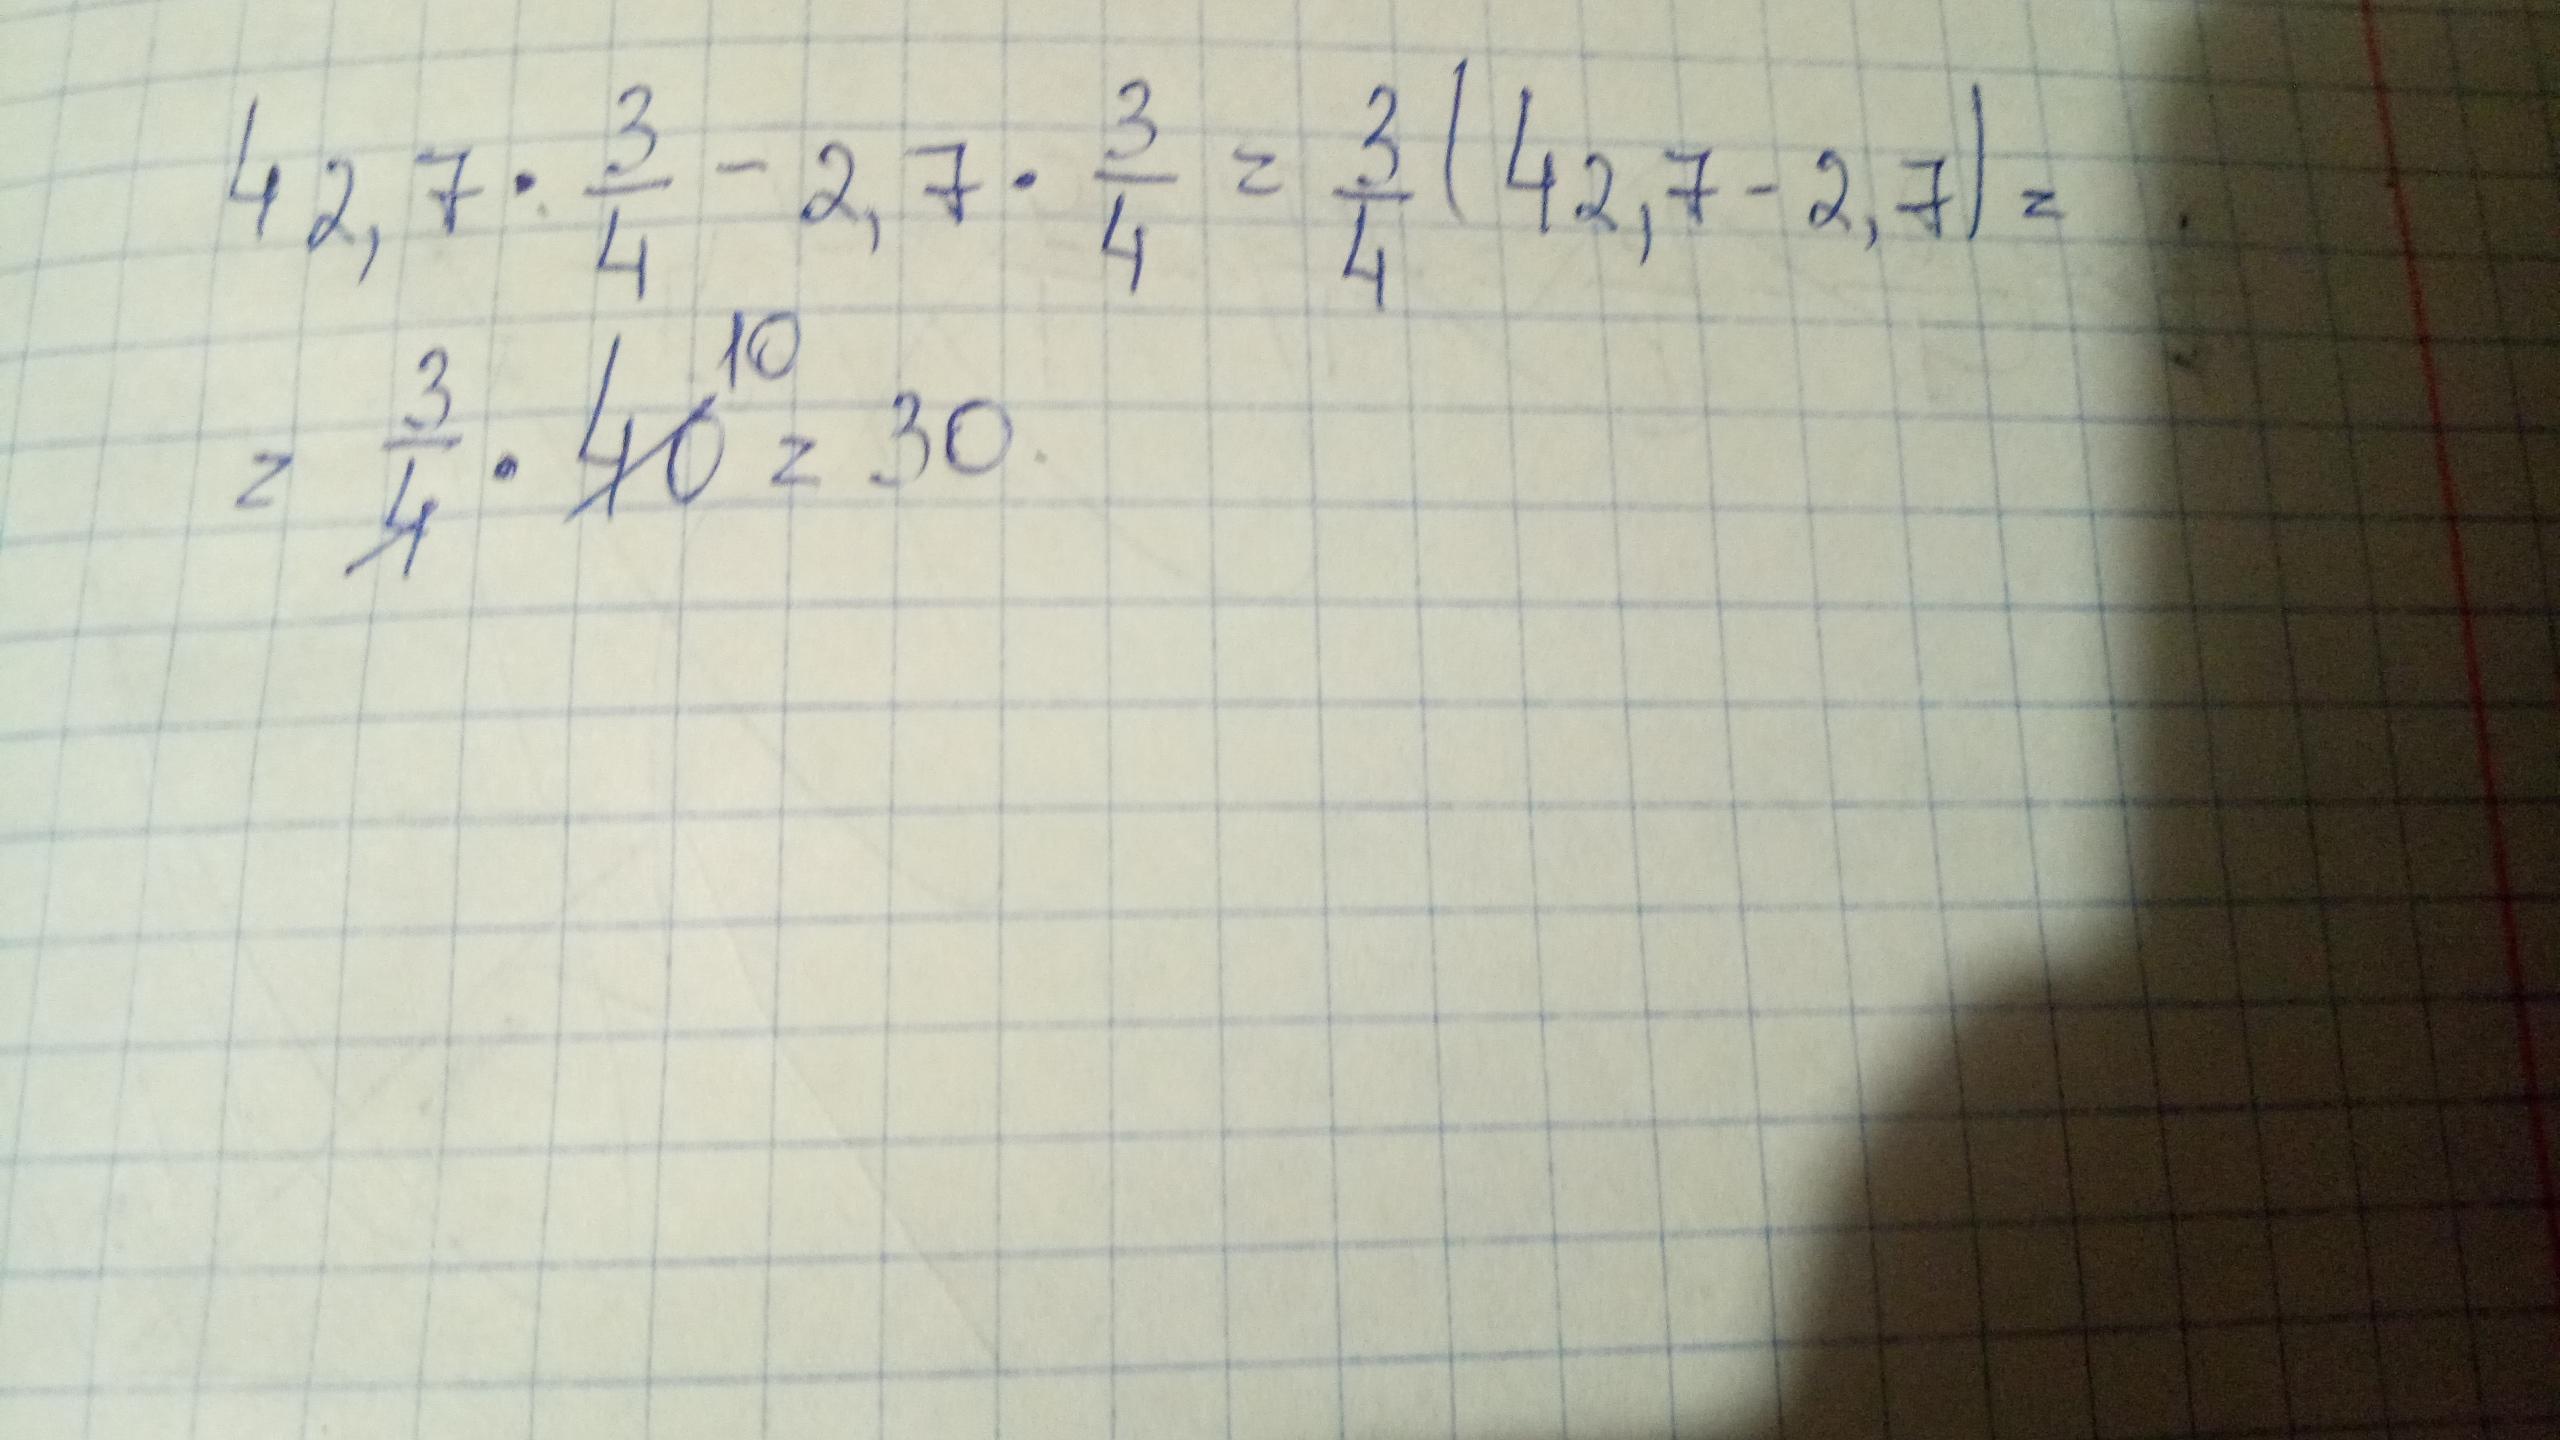 42,7 · 3/4 - 2,7 · 3/4 = 3/4 (42,7 - 2,7) =
= 3/4 · 40 10 = 30.